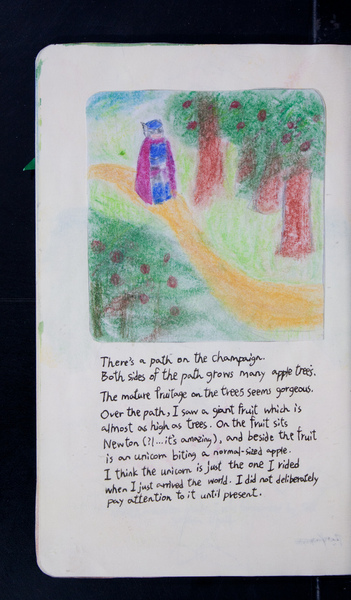 There's a path on the champaign.
Both sides of the path grows many apple trees.
The mature fruitage on the trees seems gorgeous.
Over the path, I saw a giant fruit which is
almost as high as trees. On the fruit sits
Newton (?!...it's amazing), and beside the fruit
is an unicorn biting a normal-sized apple.
I think the unicorn is just the one I rided
when I just arrived the world. I did not deliberately
pay attention to it until present.